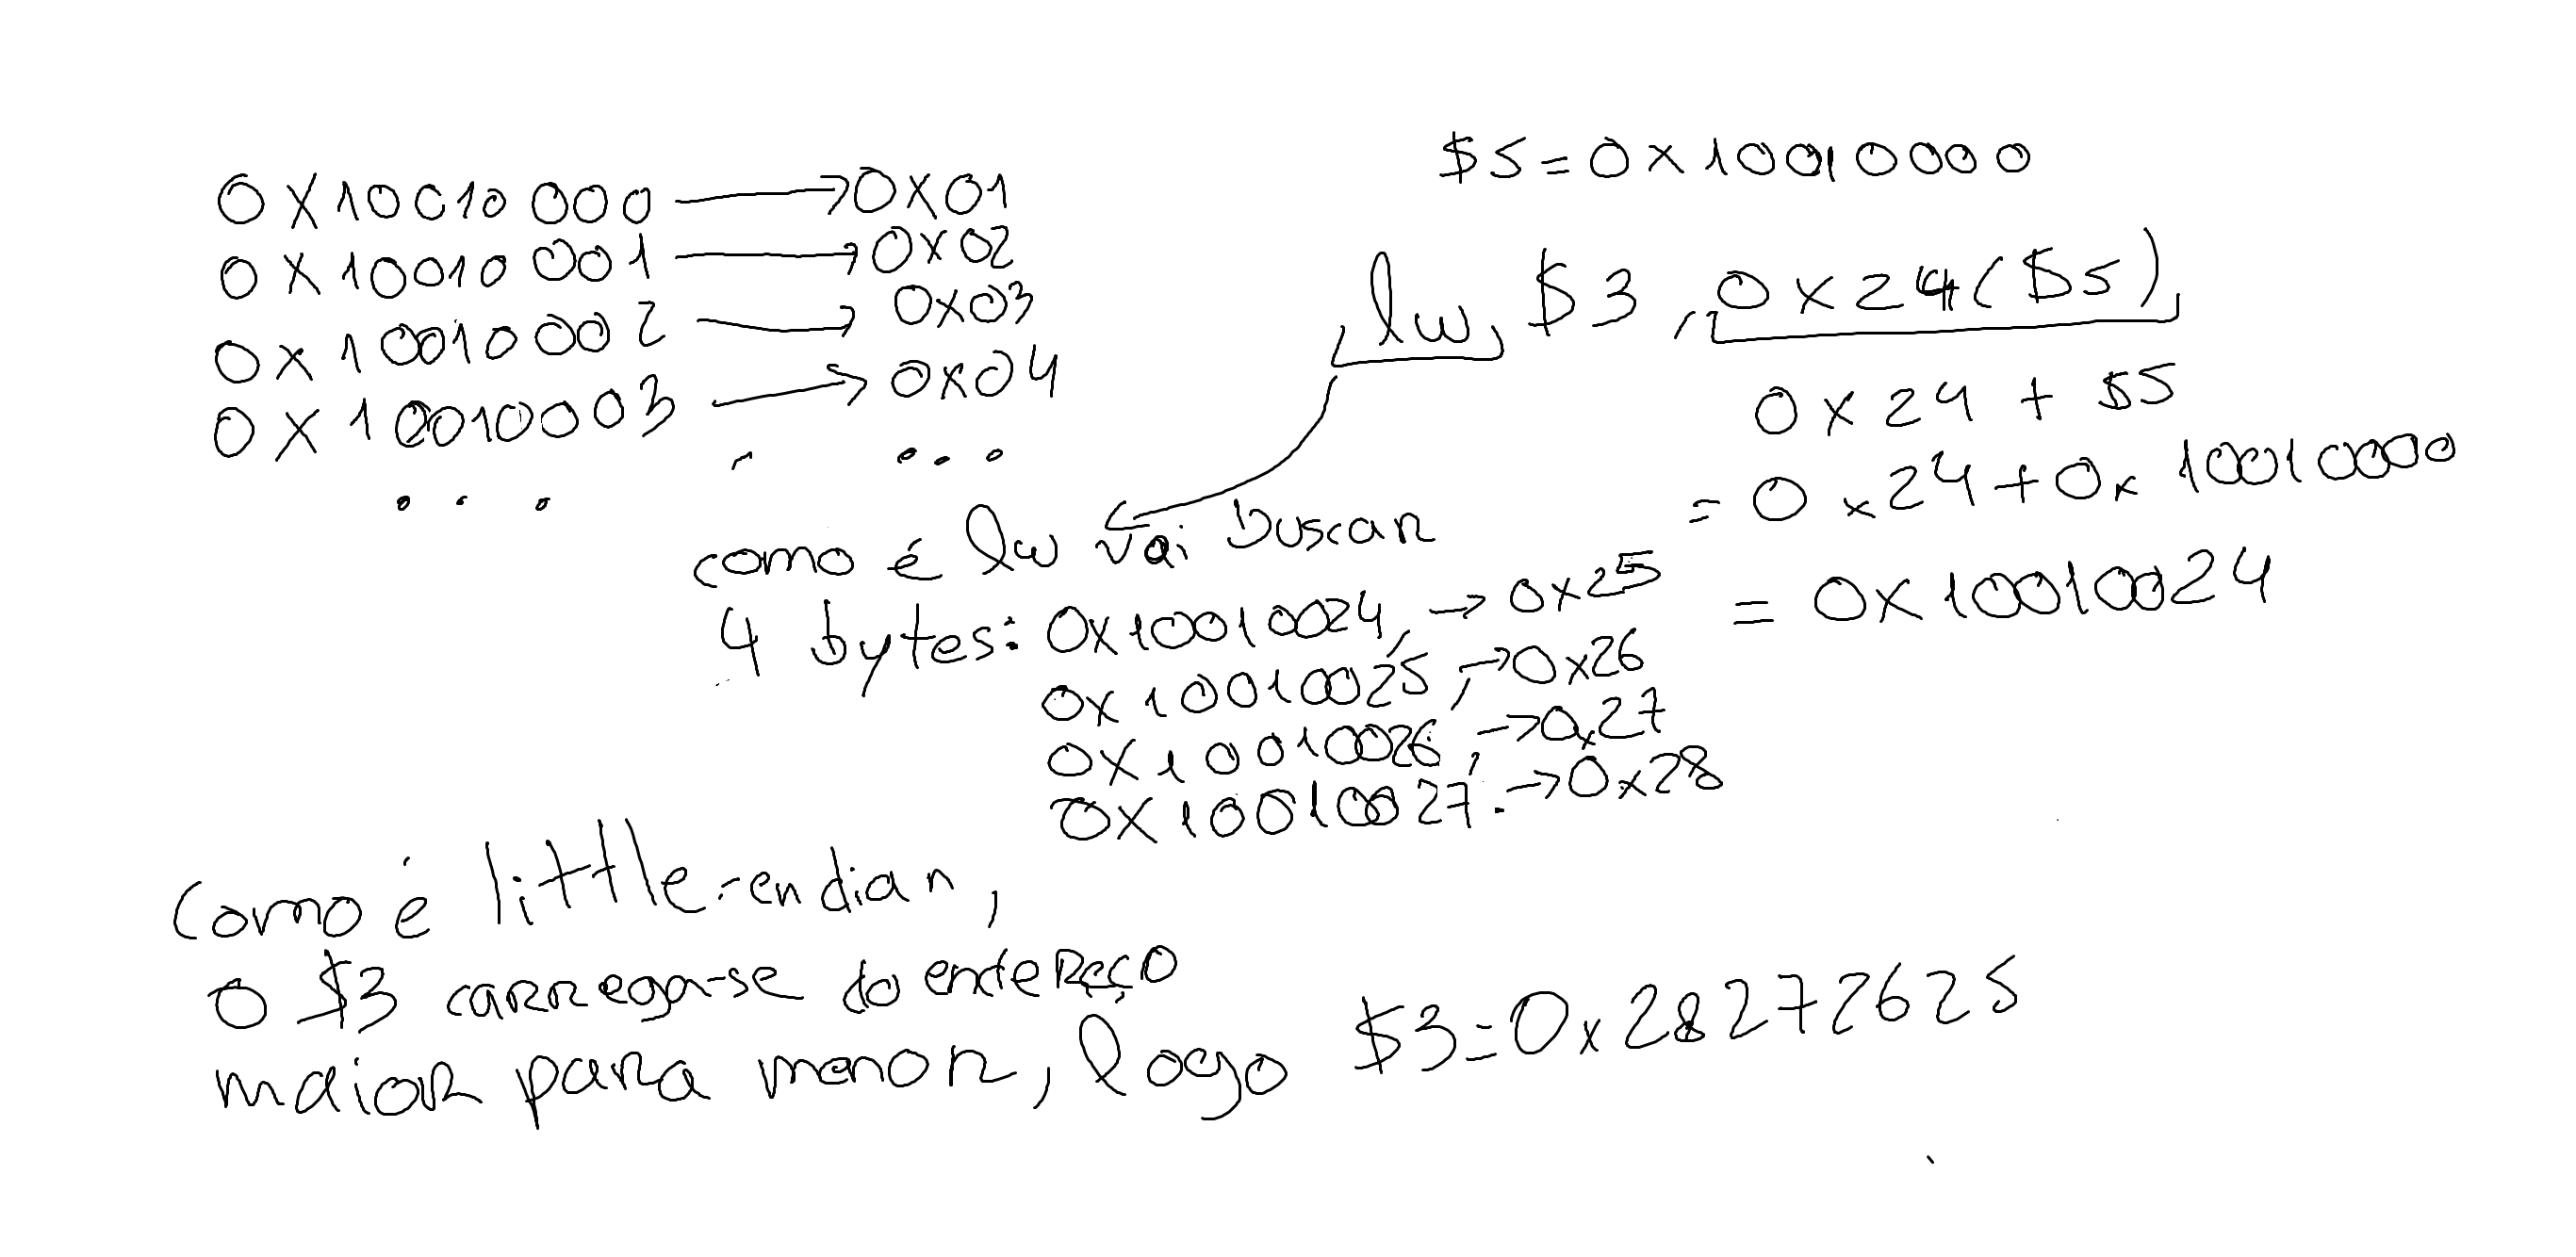 $5=0x10010000
0x10010000 → 0x01
0x10010001 → 0x02
0x10010002 → 0x03
0x10010003 → 0x04
. ...
...
lw $3, 0x24($5)
0x24 + $5
= 0x24+0x10010000
= 0x10010024
como é lw vai buscar
4 bytes: 0x10010024, → 0x25
0x10010025, → 0x26
0x10010026, → 0x27
0x10010027. → 0x28
Como é little-endian,
o $3 carrega-se do endereço
maior para menor, logo $3=0x28272625